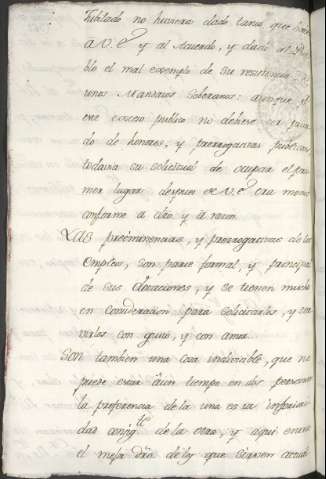 Jubilado no huviera dado tanto que
a V.E. y al Acuerdo, y dado al
blo el mal exemplo de su resistencia
unos Mandatos Soberanos: aunque
ese exceso publico no debiese ser
do de honores, y prerrogativas publicas
todavia su solicitud de ocupar el pri
mer lugar despues de V.E. era menos
conforme a dro. y a razon.
LAS preeminencias, y prerrogativas de los
Empleos, son parte formal, y principal
de sus Dotaciones, y se tienen mucho
en consideracion para solicitarlos, y ser
virlos con gusto, y con amor.
SON tambien una cosa indivisible, que no
puede estar à un tiempo en dos personas
la preferencia de la una es la inferiori
dad de la otra; y aqui entra
el mejor dro. de los que sirven actual